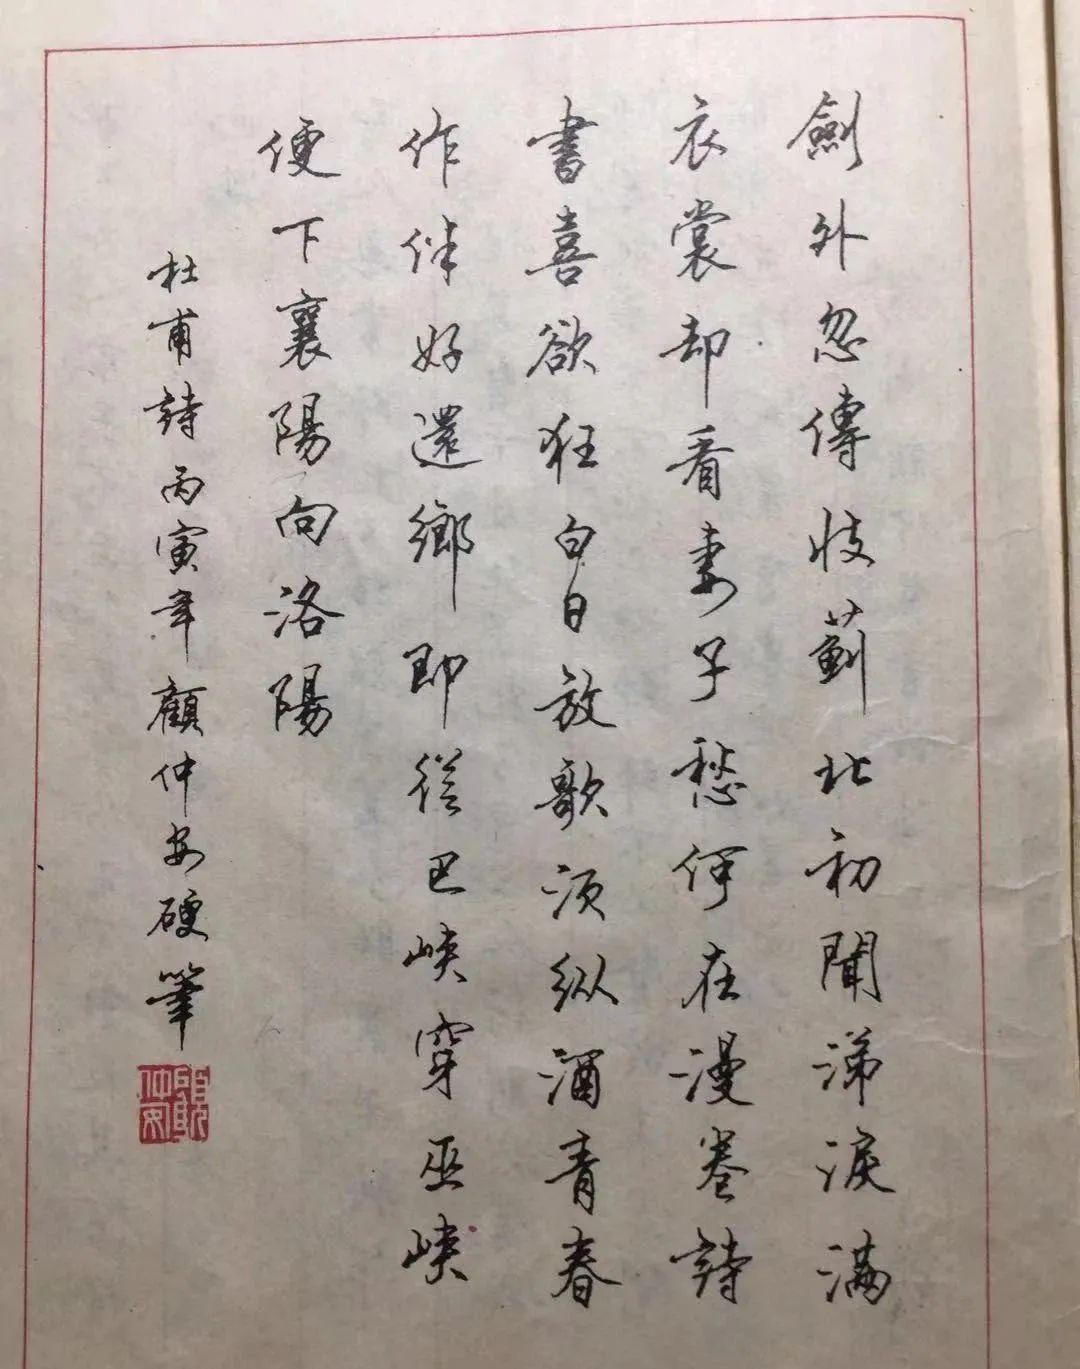 劍外忽傳收薊北初聞涕淚滿
衣裳却看妻子愁何在漫卷詩
書喜欲狂白日放歌須纵酒青春
作伴好還鄉即從巴峽穿巫峽
便下襄陽向洛陽
杜甫詩丙寅年顧仲安硬筆
顧仲安